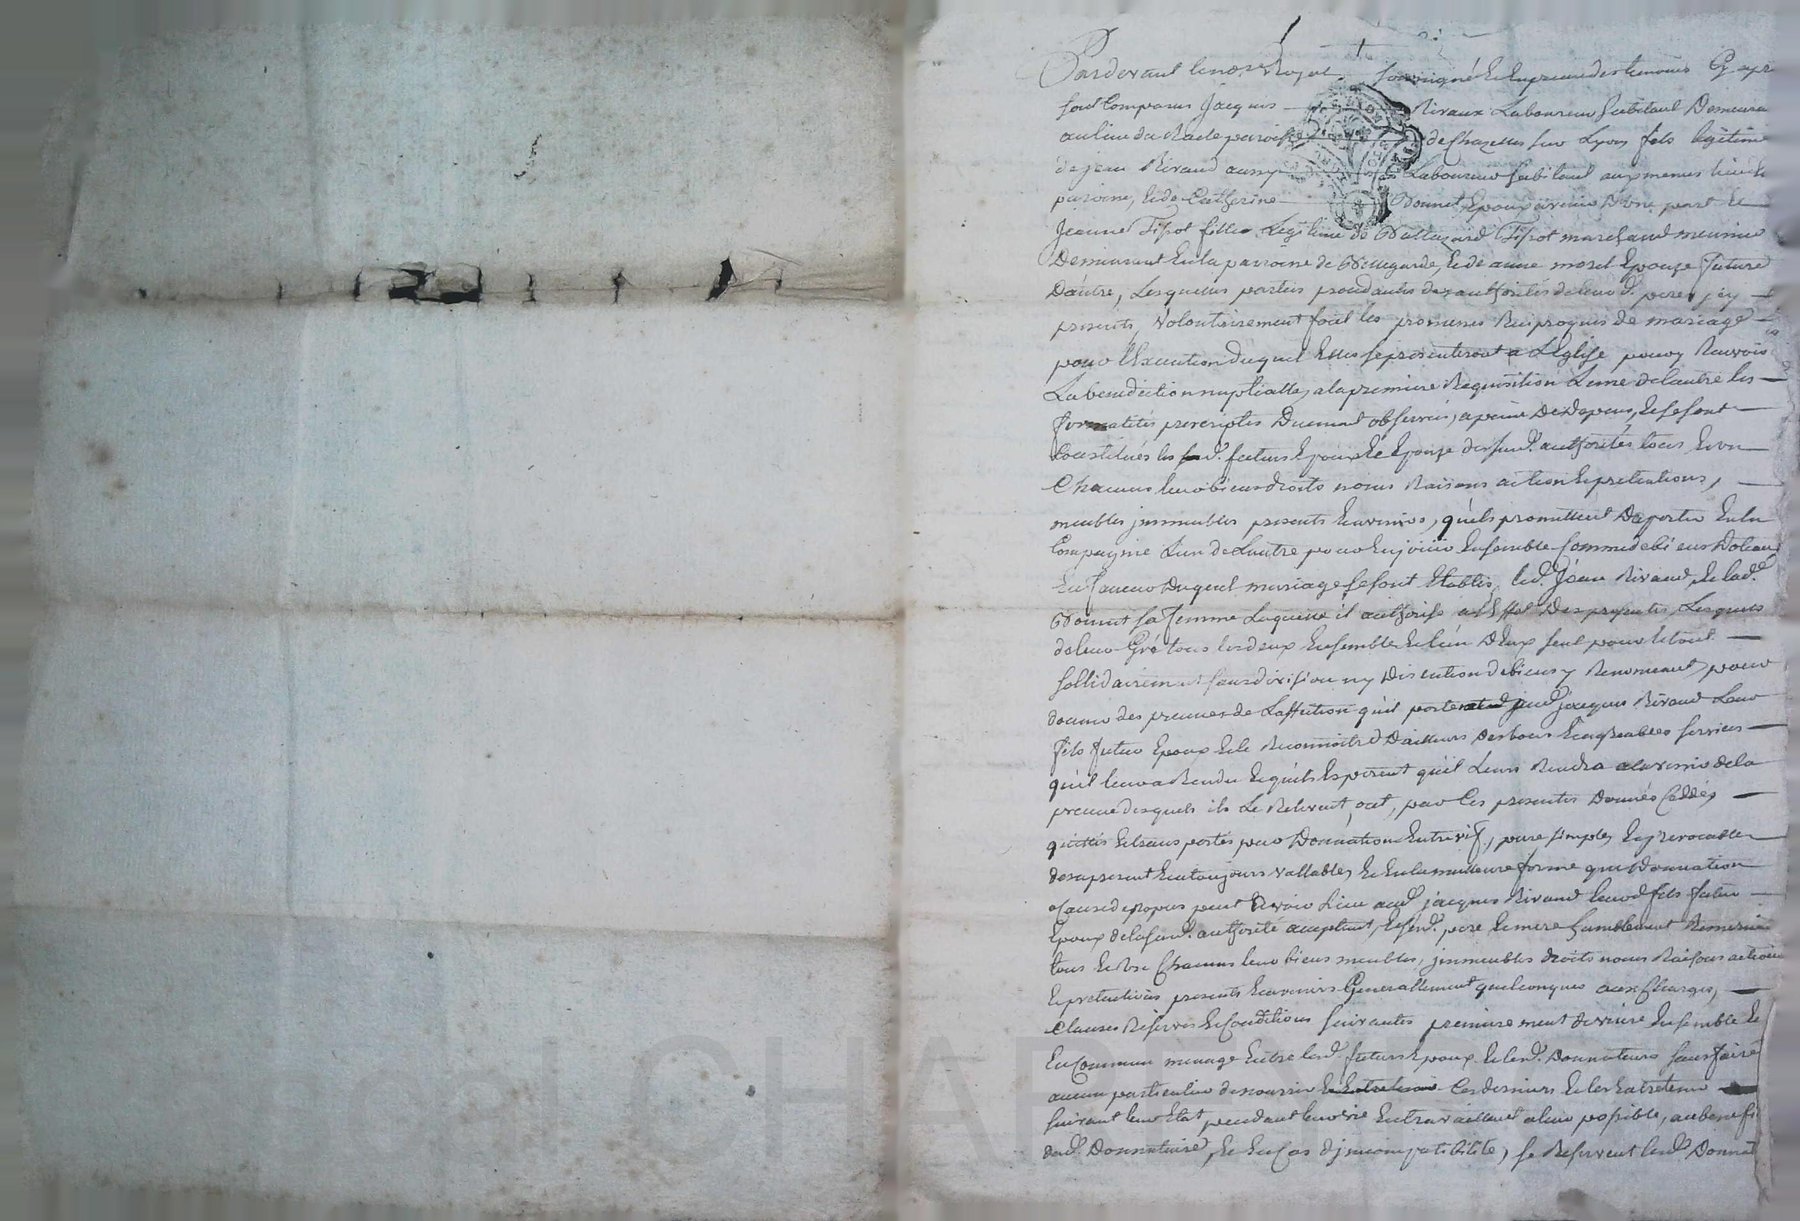 Pardevant le no.re Royal soussigné Et Enpresence des temoins Cy apr
sont Comparus Jacques Rivaux Laboureur habitant Demeura
au lieu du paroisse de Chazelles sur Lyon fils legitime
de jean Rivaud aussy Laboureur habitant aux memes lieu &
paroisse, Et de Catherine Bonnet Epoux avenir D'une part Et
Jeanne Tisot fille Legitime de Baltazard Tisot marchand meunier
Demeurant En la paroisse de Bellegarde, Et de anne morel Epouze future
D'autre, Lesquelles parties procedantes des authorités de leur d. peres icy
presents, volontairement font les promesses Reciproques de mariage
pour l'Execution duquel Elles se presenteront a L'Eglise pour y Recevoir
La benediction nuptialle, a la premiere Requisition L'une de l'autre les
formalités prescriptes Duement observées, a peine De Depens, Et se sont
Constitués les sud. futurs Epoux Et Epouze des sud. authorités tous Et un
Chacuns leur biens droits noms Raisons action Et pretentions,
meubles jmmeubles presents Et avenirs, qu'ils promettent D'aporter En la
Compagnie L'un de L'autre pour En jouir Ensemble Comme de biens Dotaux
En faveur Duquel mariage se sont Etablis, led. Jean Rivaud, Et lad.
Bonnet sa femme Laquelle il authorise a l'Effet Des presentes, Lesquels
de leur Gré tous les deux Ensemble Et l'un D'Eux seul pour le tout
sollidairement sans division ny Discution de biens y Renonceant, pour
donner des preuves de L'affection qu'il porte aud. jacques Rivaud Leur
fils futur Epoux Et le Reconnoitre D'ailleurs Des bons Et agreables services
qu'il leur a Rendu Et qu'ils Esperent qu'il Leurs Rendra a l'avenir de la
preuve desquels ils Le Relevent, ont, par Ces presentes Donnés Cédés
quittés Et transportés par Donnation Entrevif, pure simple, Et jrrevocable
des apresent Et a toujours vallable, Et En la meilleure forme que Donnation
a Cause de Nopces peut Avoir Lieu aud. jacques Rivaud leurd. fils futur
Epoux de la sud. authorité acceptant, Et sesd. pere Et mere humblement Remercian
tous Et Un Chacuns leur biens meubles, jmmeubles droits noms Raisons actions
Et pretentions presents Et avenirs Generallement quelconques aux Charges,
Clauses Reserves Et Conditions suivantes premierement de vivre Ensemble Et
En Commun menage Entre lesd. futurs Epoux Et lesd. Donnateurs sans faire
aucun particulier de nourrir Et Entretenir Ces derniers Et les Entretenir
suivant leur Etat pendant leur vie En travaillant a leur possible, au benefi
dud. Donnataire, Et En Cas D'jncompatibilité, se Reservent lesd. Donnat
CHAR